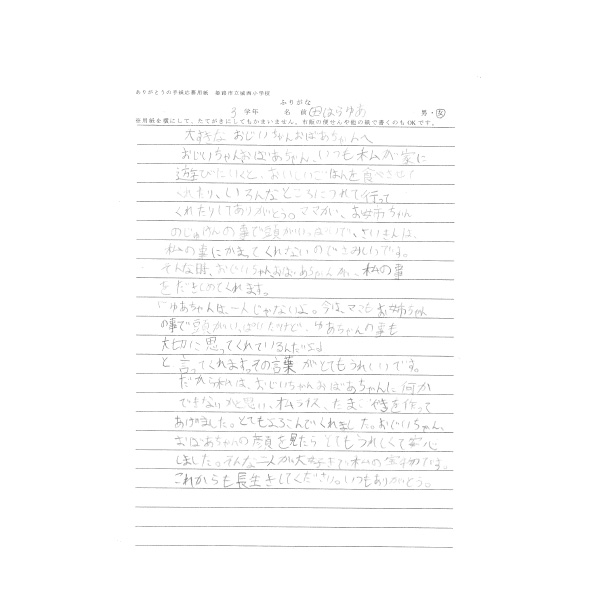 ありがとうの手紙応募用紙 姫路市立城西小学校
ふりがな
3 学年 名 前 田はらゆあ 男・女
※用紙を横にして、たてがきにしてもかまいません。市販の便せんや他の紙で書くのもOKです。
大好きな おじいちゃんおばあちゃんへ
おじいちゃんおばあちゃん、いつも私が家に
遊びにいくと、おいしいごはんを食べさせて
くれたり、いろんなところにつれて行って
くれたりしてありがとう。ママがい、お姉ちゃん
のじゅけんの事で頭がいっぱいで、さいきんは、
私の事にかまってくれないのでさみしいです。
そんな時、おじいちゃんおばあちゃんが、私の事
をだきしめてくれます。
「ゆあちゃんは、一人じゃないよ。今は、ママもお姉ちゃん
の事で頭がいっぱいだけど、ゆあちゃんの事も
大切に思ってくれているんだよ」
と言ってくれます。その言葉がとてもうれしいです。
だから私は、おじいちゃんおばあちゃんに何か
できないかと思い、オムライス、たまごやきを作って
あげました。とてもよろこんでくれました。おじいちゃん、
おばあちゃんの顔を見たらとてもうれしくて安心
しました。そんな二人が大好きで私の宝物です。
これからも長生きしてください。いつもありがとう。